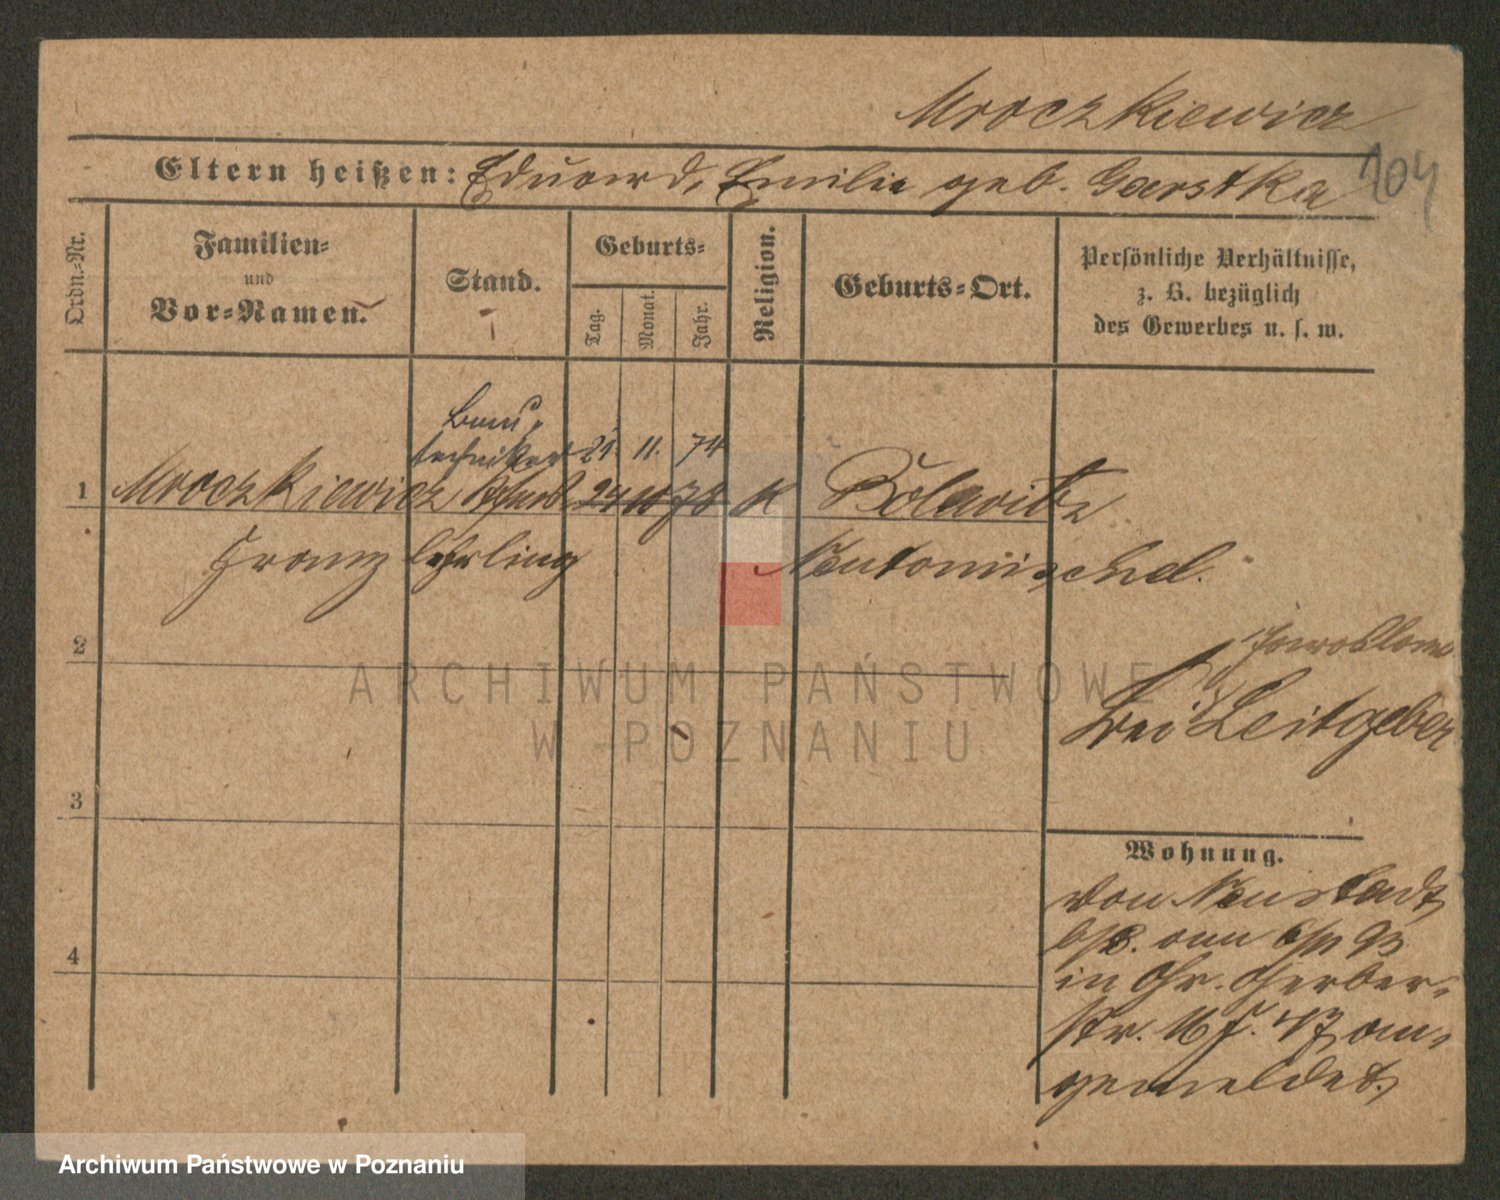 Mroczkiewicz
Eltern heißen: Eduard, Emilie geb. Garstka
204
Ordn.-Nr.
Familien-
und
Vor-Namen.
Stand.
Geburts-
Tag.
Monat.
Jahr.
Religion.
Geburts-Ort.
Persönliche Verhältnisse,
z. B. bezüglich
des Gewerbes u. s. w.
Bau-
techniker 21. 11. 74
1 Mroczkiewicz 24 10 78 K
Franz lehrling Neutomischel.
2
bei Leitgeber
3
4
Wohnung.
von Neustadt
b/P. am 93
in Gr. Gerber-
str. 47 an-
gemeldet.
ARCHIWUM PAŃSTWOWE
W POZNANIU
Archiwum Państwowe w Poznaniu